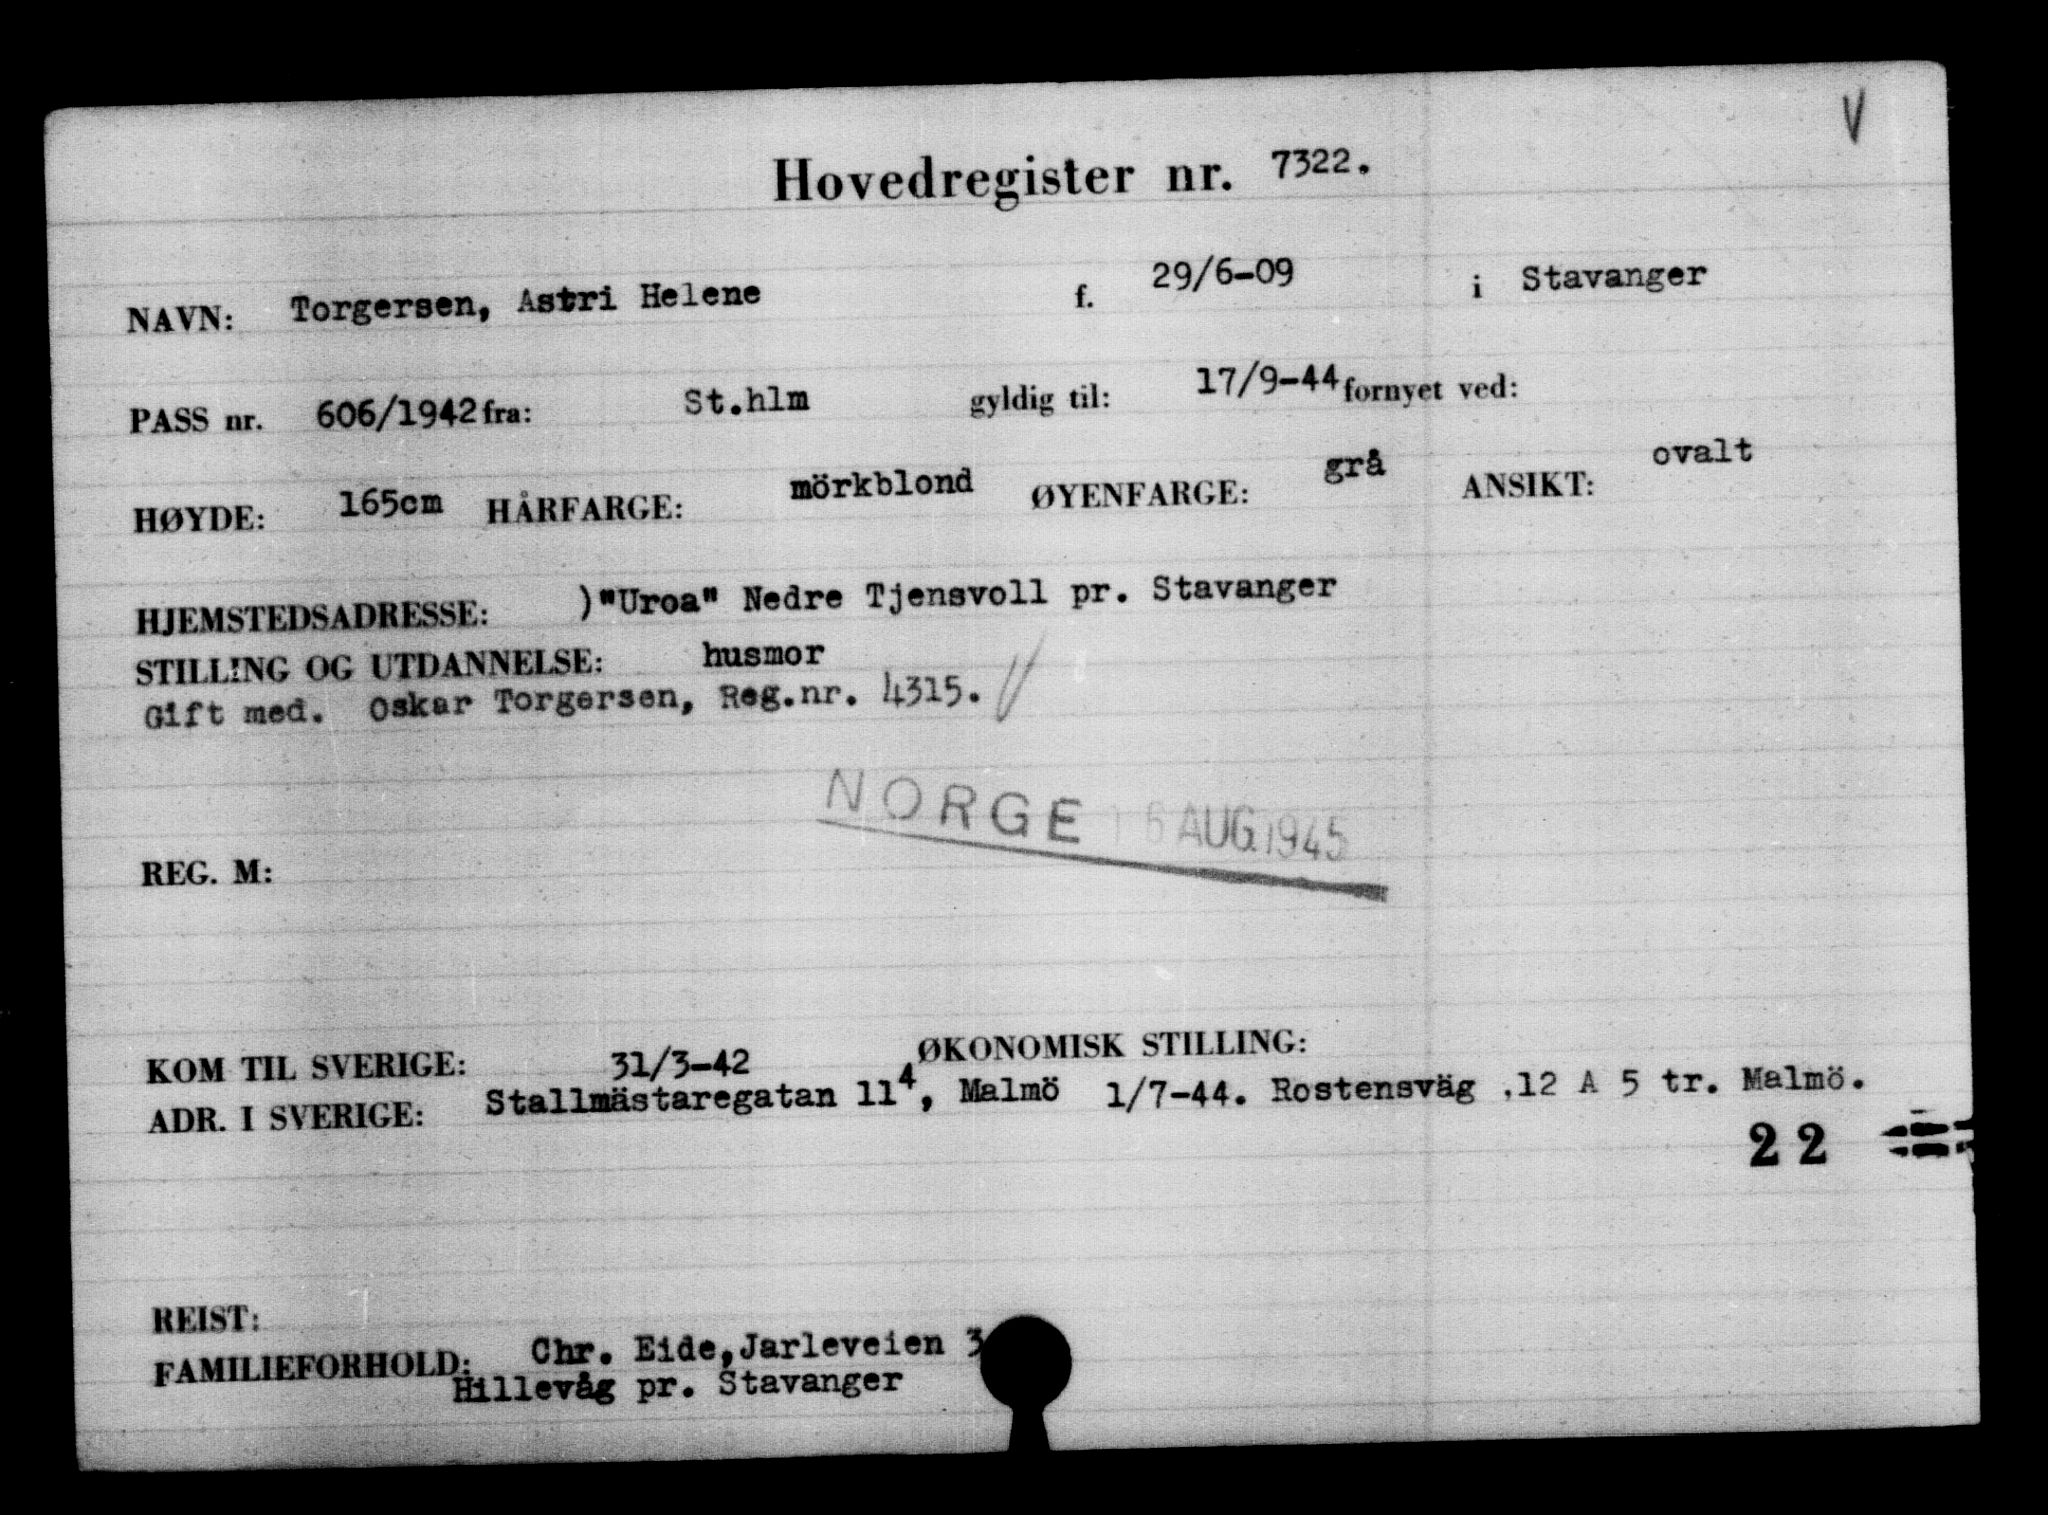 V
Hovedregister nr. 7322.
NAVN: Torgersen, Astri Helene f. 29/6-09 i Stavanger
PASS nr. 606/1942 fra: St.hlm gyldig til: 17/9-44 fornyet ved:
HØYDE: 165cm HÅRFARGE: mörkblond ØYENFARGE: grå ANSIKT: ovalt
HJEMSTEDSADRESSE: )"Uroa" Nedre Tjensvoll pr. Stavanger
STILLING OG UTDANNELSE: husmor
Gift med. Oskar Torgersen, Reg.nr. 4315. V
NORGE 16 AUG.1945
REG. M:
KOM TIL SVERIGE: 31/3-42 ØKONOMISK STILLING:
ADR. I SVERIGE: Stallmästaregatan 11⁴, Malmö 1/7-44. Rostensväg ,12 A 5 tr. Malmö.
22
REIST:
FAMILIEFORHOLD: Chr. Eide,Jarleveien 3
Hillevåg pr. Stavanger